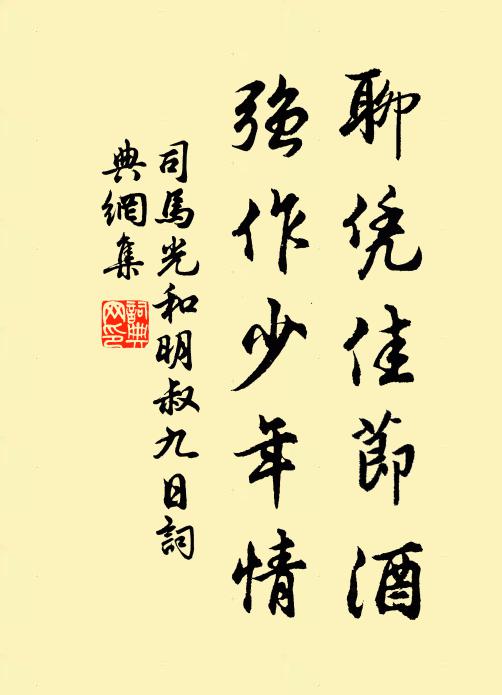 聊凭佳節酒
強作少年情
司馬光和明叔九日詞
典網集
詞典
网印